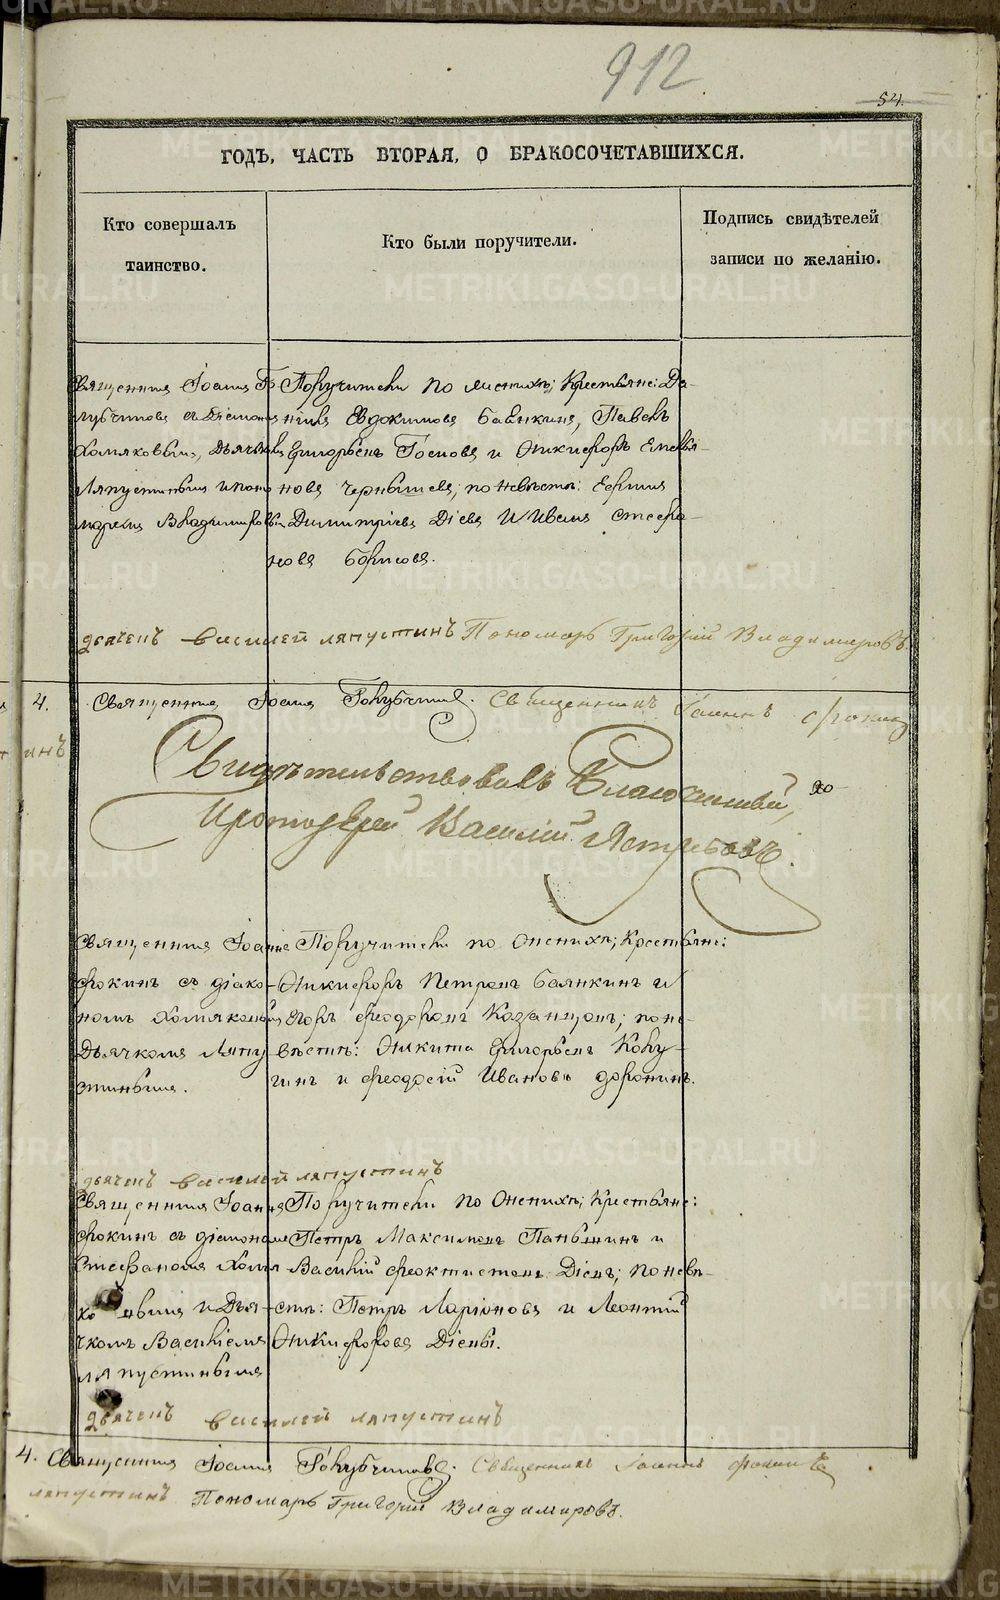 912
54.
ГОДЪ, ЧАСТЬ ВТОРАЯ, О БРАКОСОЧЕТАВШИХСЯ.
Кто совершалъ
таинство.
Кто были поручители.
Подпись свидѣтелей
записи по желанію.
Священникъ Іоаннъ Го-
лубчиковъ съ діакономъ
Хомяковымъ, Дьячкомъ
Ляпустинымъ и поно-
маремъ Владимировымъ
Поручители по женихѣ: Крестьяне: Да-
нилъ Евдокимовъ Баянкинъ, Павелъ
Григорьевъ и Никифоръ Емелья-
новъ Чернышевъ; по невѣстѣ:
Димитріевъ Діевъ и Иванъ Стефа-
новъ Борисовъ.
дьячекъ василей ляпустинъ Пономарь Григорій Владимировъ.
4. Священникъ Іоаннъ Голубчиковъ. Священникъ Іоаннъ Фокинъ
инъ
Свидѣтельствовалъ Благочинный,
Протоіерей Василій Ястребовъ.
Священникъ Іоаннъ
Фокинъ съ діако-
номъ Хомяковымъ
Дьячкомъ Ляпу-
стинымъ.
Поручители по женихѣ: Крестьяне:
Никифоръ Петровъ Баянкинъ и
Егоръ Феодоровъ Казанцовъ; по не-
вѣстѣ: Никита Григорьевъ Кополу-
гинъ и Феодосій Ивановъ Доронинъ.
дьячекъ василей ляпустинъ
Священникъ Іоаннъ
Фокинъ съ діакономъ
Стефаномъ Хомя-
ковымъ и Дья-
чкомъ Василіемъ
Ляпустинымъ
Поручители по женихѣ: Крестьяне:
Петръ Максимовъ Паньшинъ и
Василій Феоктистовъ Діевъ; по невѣ-
стѣ: Петръ Ларіоновъ и Леонтій
Никифоровъ Діевы.
дьячекъ василей ляпустинъ
4. Священникъ Іоаннъ Голубчиковъ. Священникъ Іоаннъ Фокинъ
ляпустинъ Пономарь Григорій Владимировъ.
METRIKI.GASO-URAL.RU